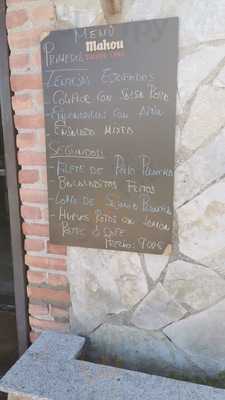 MENÚ
PRIMEROS
Mahou
- LENTEJAS ESTOFADAS
- COLIFLOR CON SALSA ROSA
- ESPINACAS CON
- ENSALADA MIXTA
SEGUNDOS
- FILETE DE POLLO PLANCHA
- BACALADITOS FRITOS
- LOMO DE SAJONIA PLANCHA
- HUEVOS ROTOS CON JAMON
POSTRE Ó CAFE
PRECIO: 9'00€